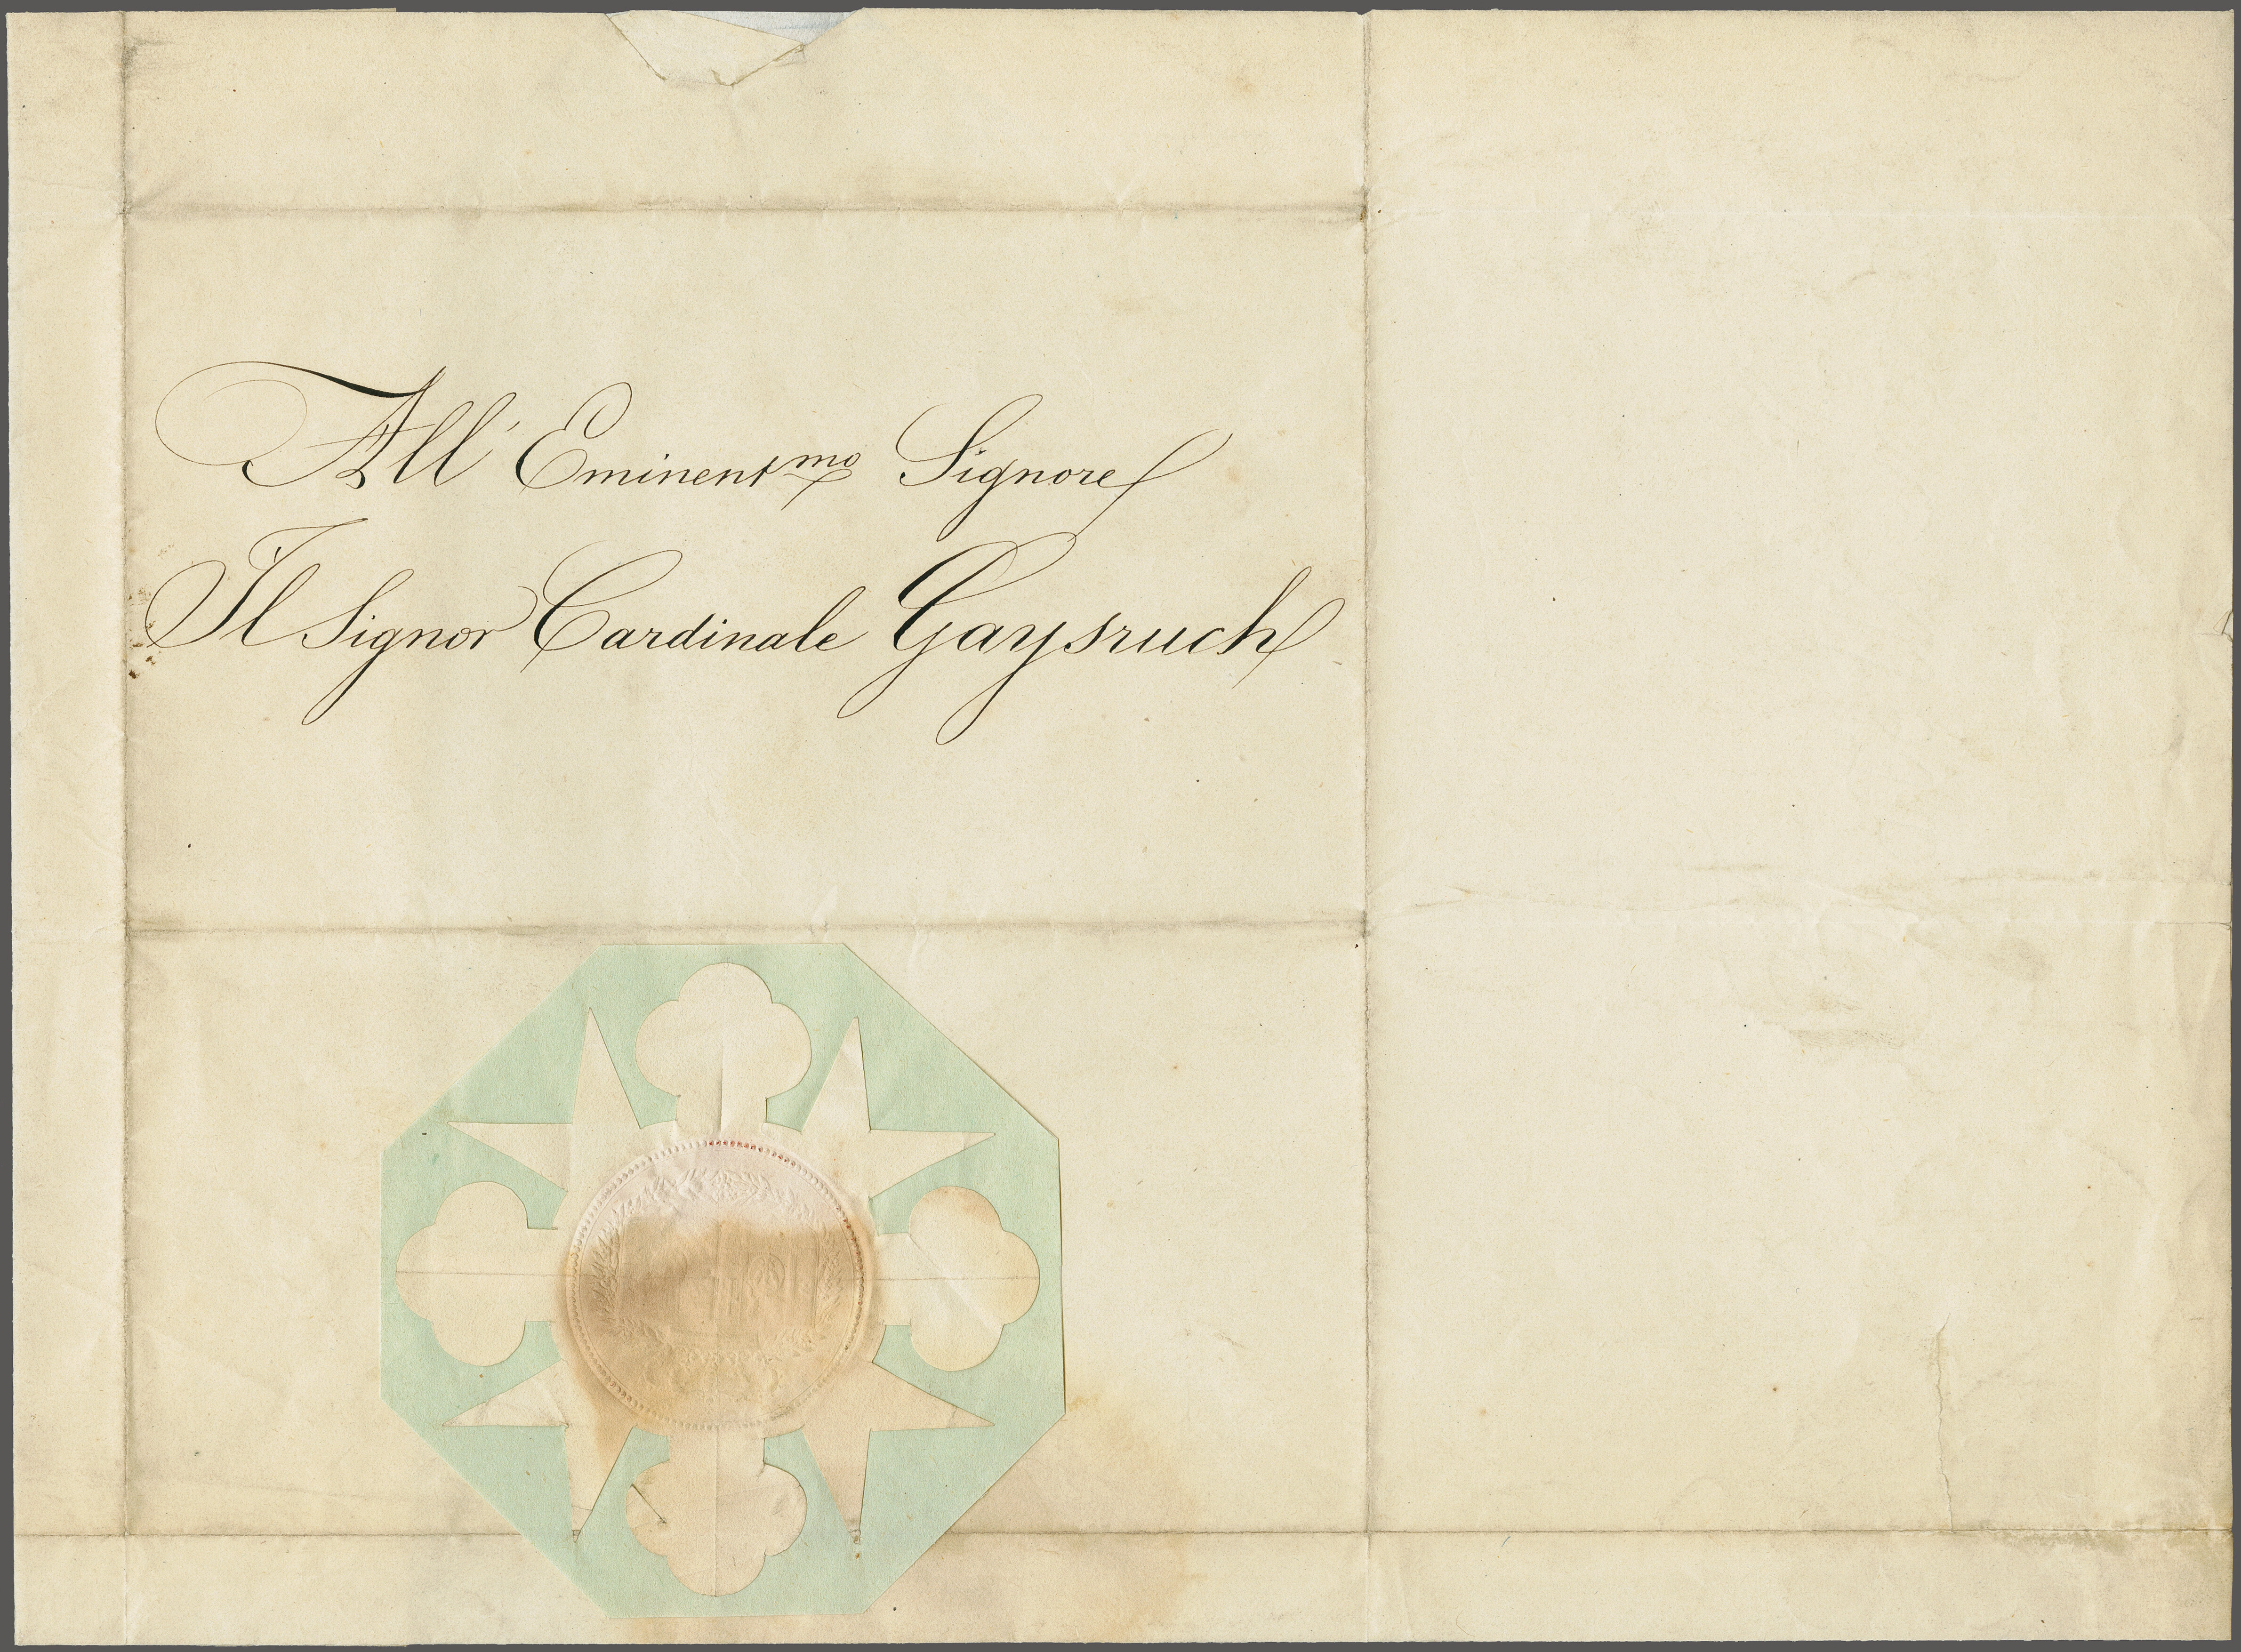 All' Eminent.mo Signore
Il Signor Cardinale Gaysruch